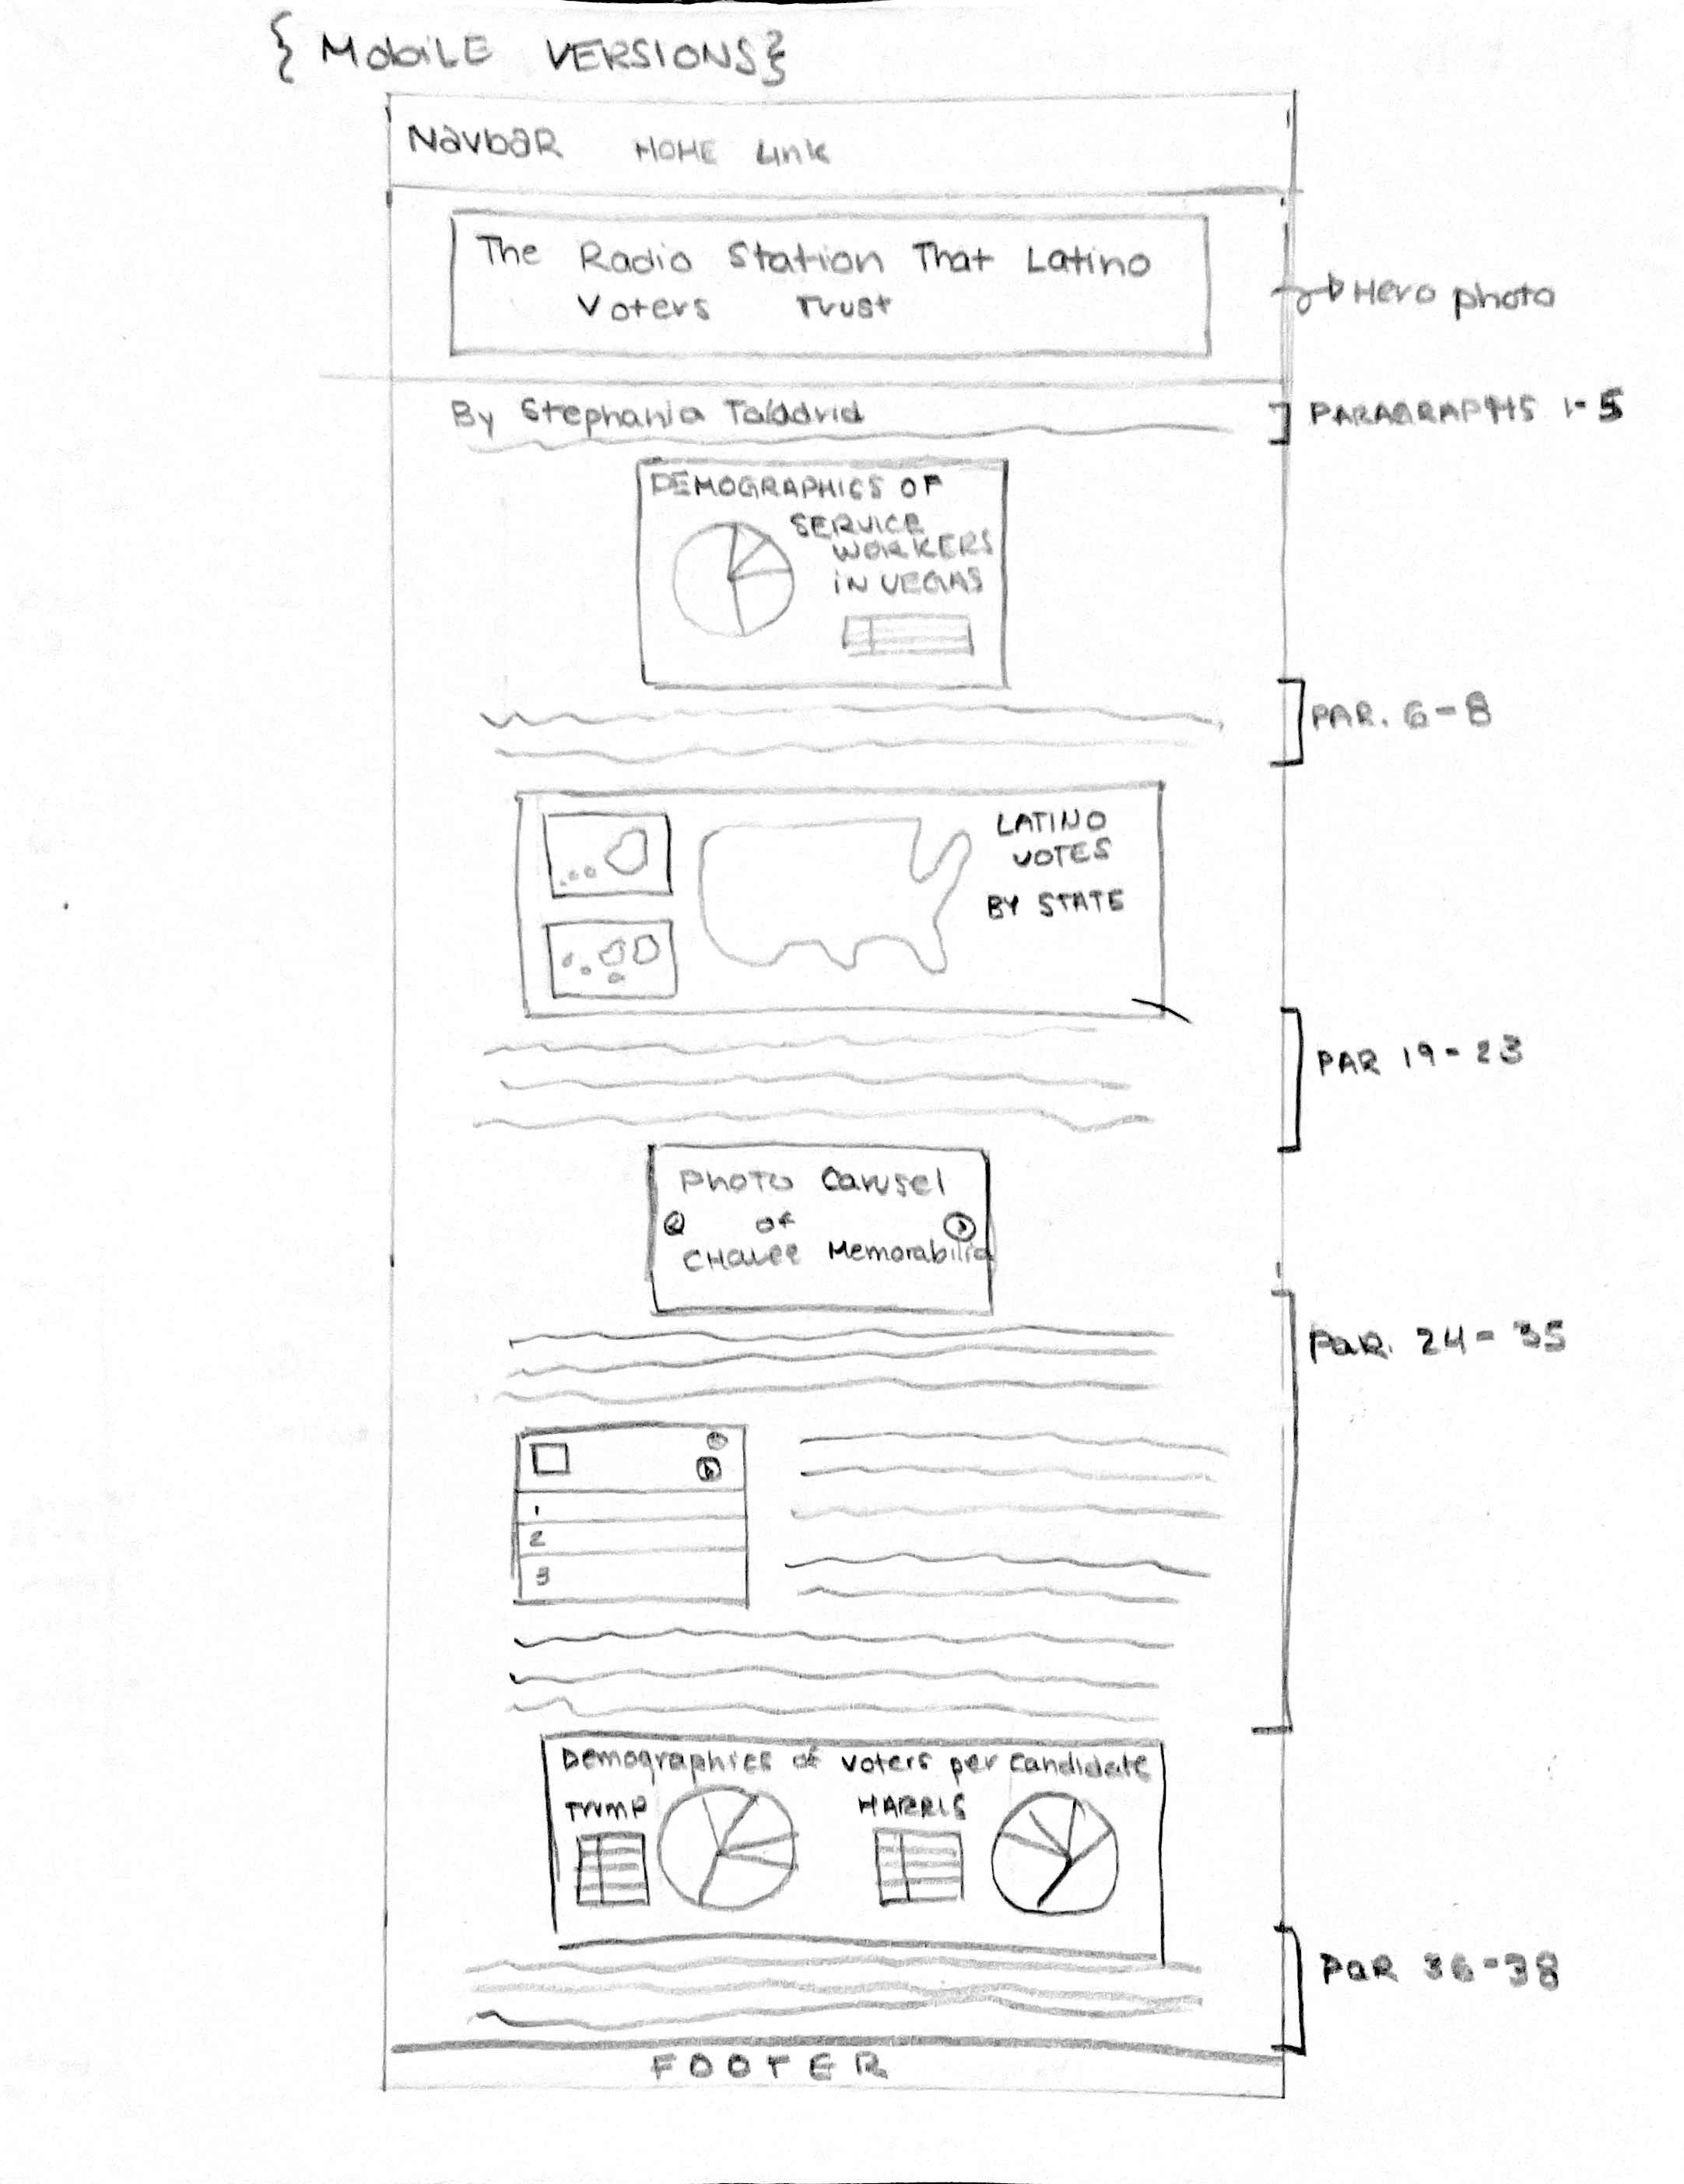 { MobiLE VERSIONS}
NavbaR HOME Link
The Radio Station That Latino
Voters Trust
Hero photo
By Stephania Taladrid
PARAGRAPHS 1-5
DEMOGRAPHICS OF
SERVICE
WORKERS
iN VEGAS
PAR. 6-8
LATINO
VOTES
BY STATE
PAR 19-23
Photo Carusel
of
Memorabilia
PaR. 24-35
1
2
3
Demographics of voters per candidate
TRUMP HARRIS
PaR 36-38
FOOTER